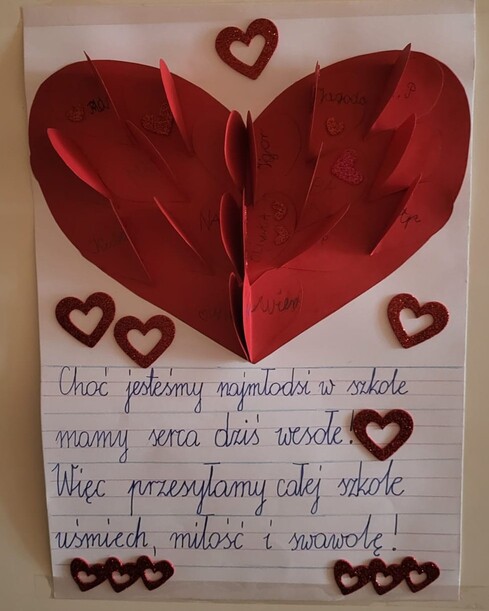 Choć jesteśmy najmłodsi w szkole
mamy serca dziś wesołe!
Więc przesyłamy całej szkole
uśmiech, miłość i swawolę!